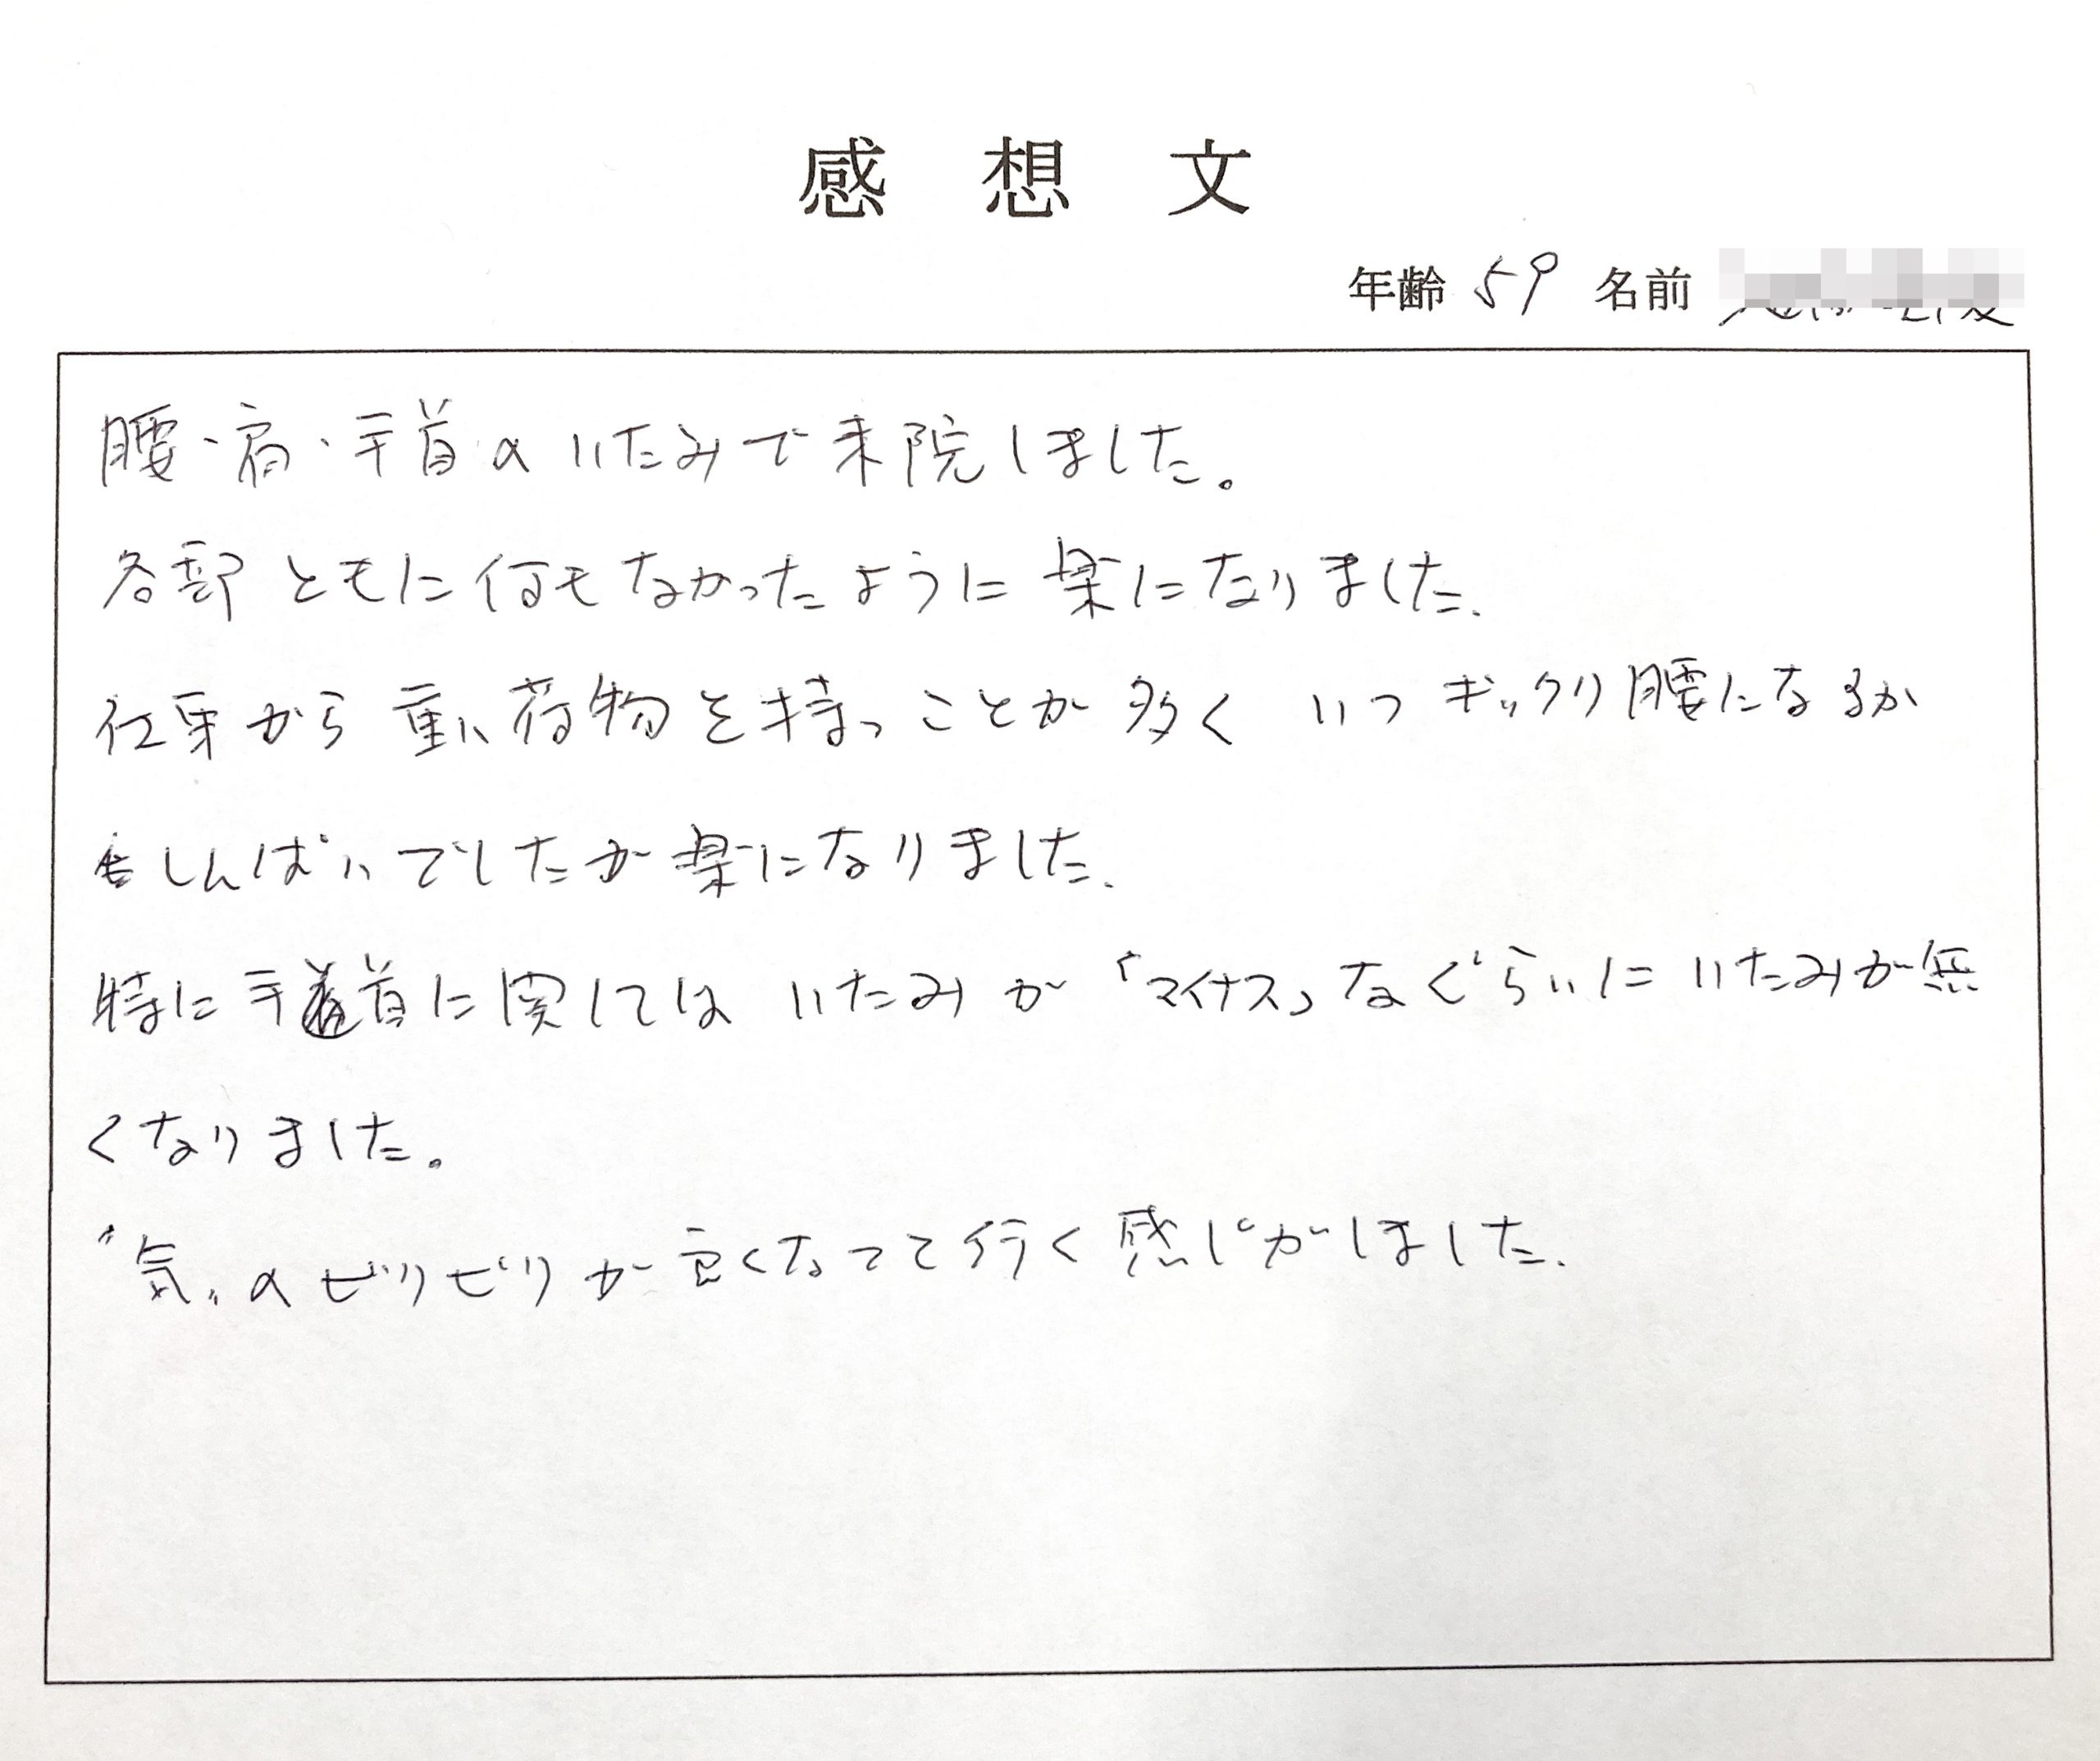 感想文
年齢 59 名前
腰・肩・手首のいたみで来院しました。
各部ともに何もなかったように楽になりました。
仕事から重い荷物を持つことが多く いつギックリ腰になるか
しんぱいでしたが楽になりました。
特に手首に関しては いたみが「マイナス」なぐらいに いたみが無
くなりました。
"気"のピリピリが良くなって行く感じがしました。